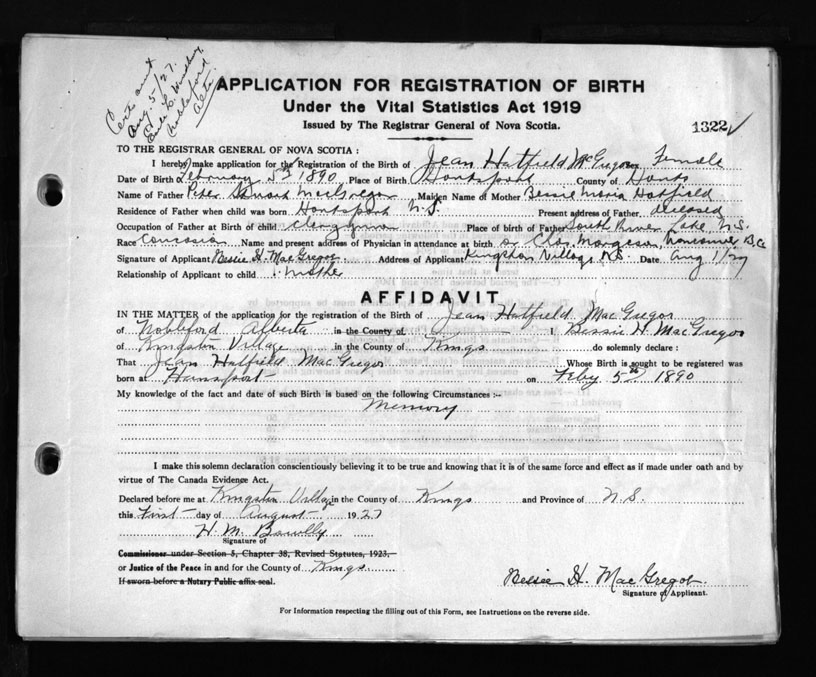 Cert sent
Aug. 5/27.
Nobleford
Alta.
APPLICATION FOR REGISTRATION OF BIRTH
Under the Vital Statistics Act 1919
Issued by The Registrar General of Nova Scotia.
1322 ✓
TO THE REGISTRAR GENERAL OF NOVA SCOTIA :
I hereby make application for the Registration of the Birth of Jean Hatfield McGregor Female
Date of Birth February 5th 1890 Place of Birth Hantsport County of Hants
Name of Father Peter MacGregor Maiden Name of Mother Bessie Maria Hatfield
Residence of Father when child was born Hantsport N.S. Present address of Father deceased
Occupation of Father at Birth of child clergyman Place of birth of Father South River Lake N.S.
Race Name and present address of Physician in attendance at birth Dr Chas. Margeson, Vancouver B.C.
Signature of Applicant Bessie H. MacGregor Address of Applicant Kingston Village N.S. Date Aug 1/27
Relationship of Applicant to child mother
AFFIDAVIT
IN THE MATTER of the application for the registration of the Birth of Jean Hatfield MacGregor
of Nobleford Alberta in the County of I, Bessie H. MacGregor
of Kingston Village in the County of Kings do solemnly declare :
That Jean Hatfield MacGregor Whose Birth is sought to be registered was
born at Hantsport on Feby 5th 1890
My knowledge of the fact and date of such Birth is based on the following Circumstances :-
Memory
I make this solemn declaration conscientiously believing it to be true and knowing that it is of the same force and effect as if made under oath and by
virtue of The Canada Evidence Act.
Declared before me at Kingston Village in the County of Kings and Province of N.S.
this First day of August 1927
H. M.
Signature of
Commissioner under Section 5, Chapter 38, Revised Statutes, 1923,
or Justice of the Peace in and for the County of Kings
If sworn before a Notary Public affix seal.
Bessie H. MacGregor
Signature of Applicant.
For Information respecting the filling out of this Form, see Instructions on the reverse side.